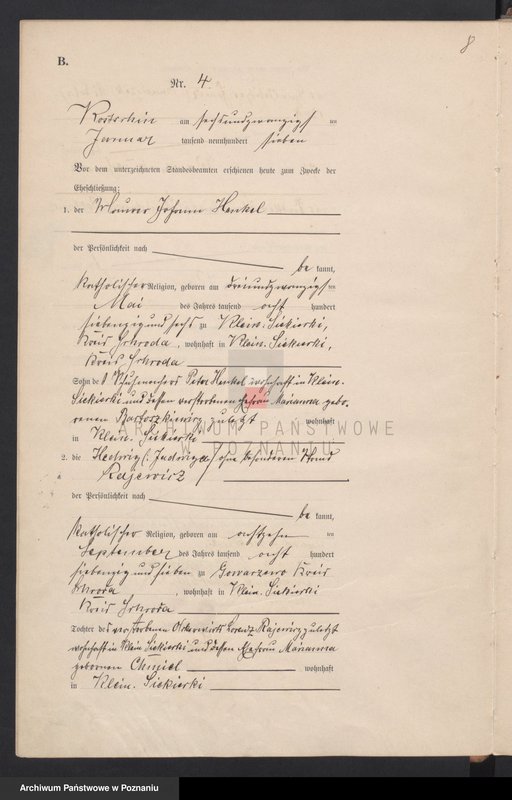 8
B.
Nr. 4
Kostschin am sechsundzwanzigsten
Januar tausend neunhundert sieben
Vor dem unterzeichneten Standesbeamten erschienen heute zum Zwecke der
Eheschließung:
1. der Maurer Johann Henkel
der Persönlichkeit nach
be kannt,
katholischer Religion, geboren am dreiundzwanzigsten
Mai des Jahres tausend acht hundert
siebenzig und sechs zu Klein-Siekierki,
Kreis Schroda, wohnhaft in Klein-Siekierki,
Kreis Schroda
Sohn des Schuhmachers Peter Henkel wohnhaft in Klein-
Siekierki und dessen verstorbenen Ehefrau Marianna gebo-
renen Bartoszkiewicz zuletzt wohnhaft
in Klein-Siekierki
ARCHIWUM PAŃSTWOWE
W POZNANIU
2. die Hedwig (: Jadwiga :) ohne besonderen Stand
Rajewicz
der Persönlichkeit nach
be kannt,
katholischer Religion, geboren am achtzehnten
September des Jahres tausend acht hundert
siebenzig und sieben zu Gowarzewo Kreis
Schroda, wohnhaft in Klein-Siekierki
Kreis Schroda
Tochter des verstorbenen Ackerwirts Lorenz Rajewicz zuletzt
wohnhaft in Klein Siekierki und dessen Ehefrau Marianna
geborenen Chmiel wohnhaft
in Klein-Siekierki
Archiwum Państwowe w Poznaniu